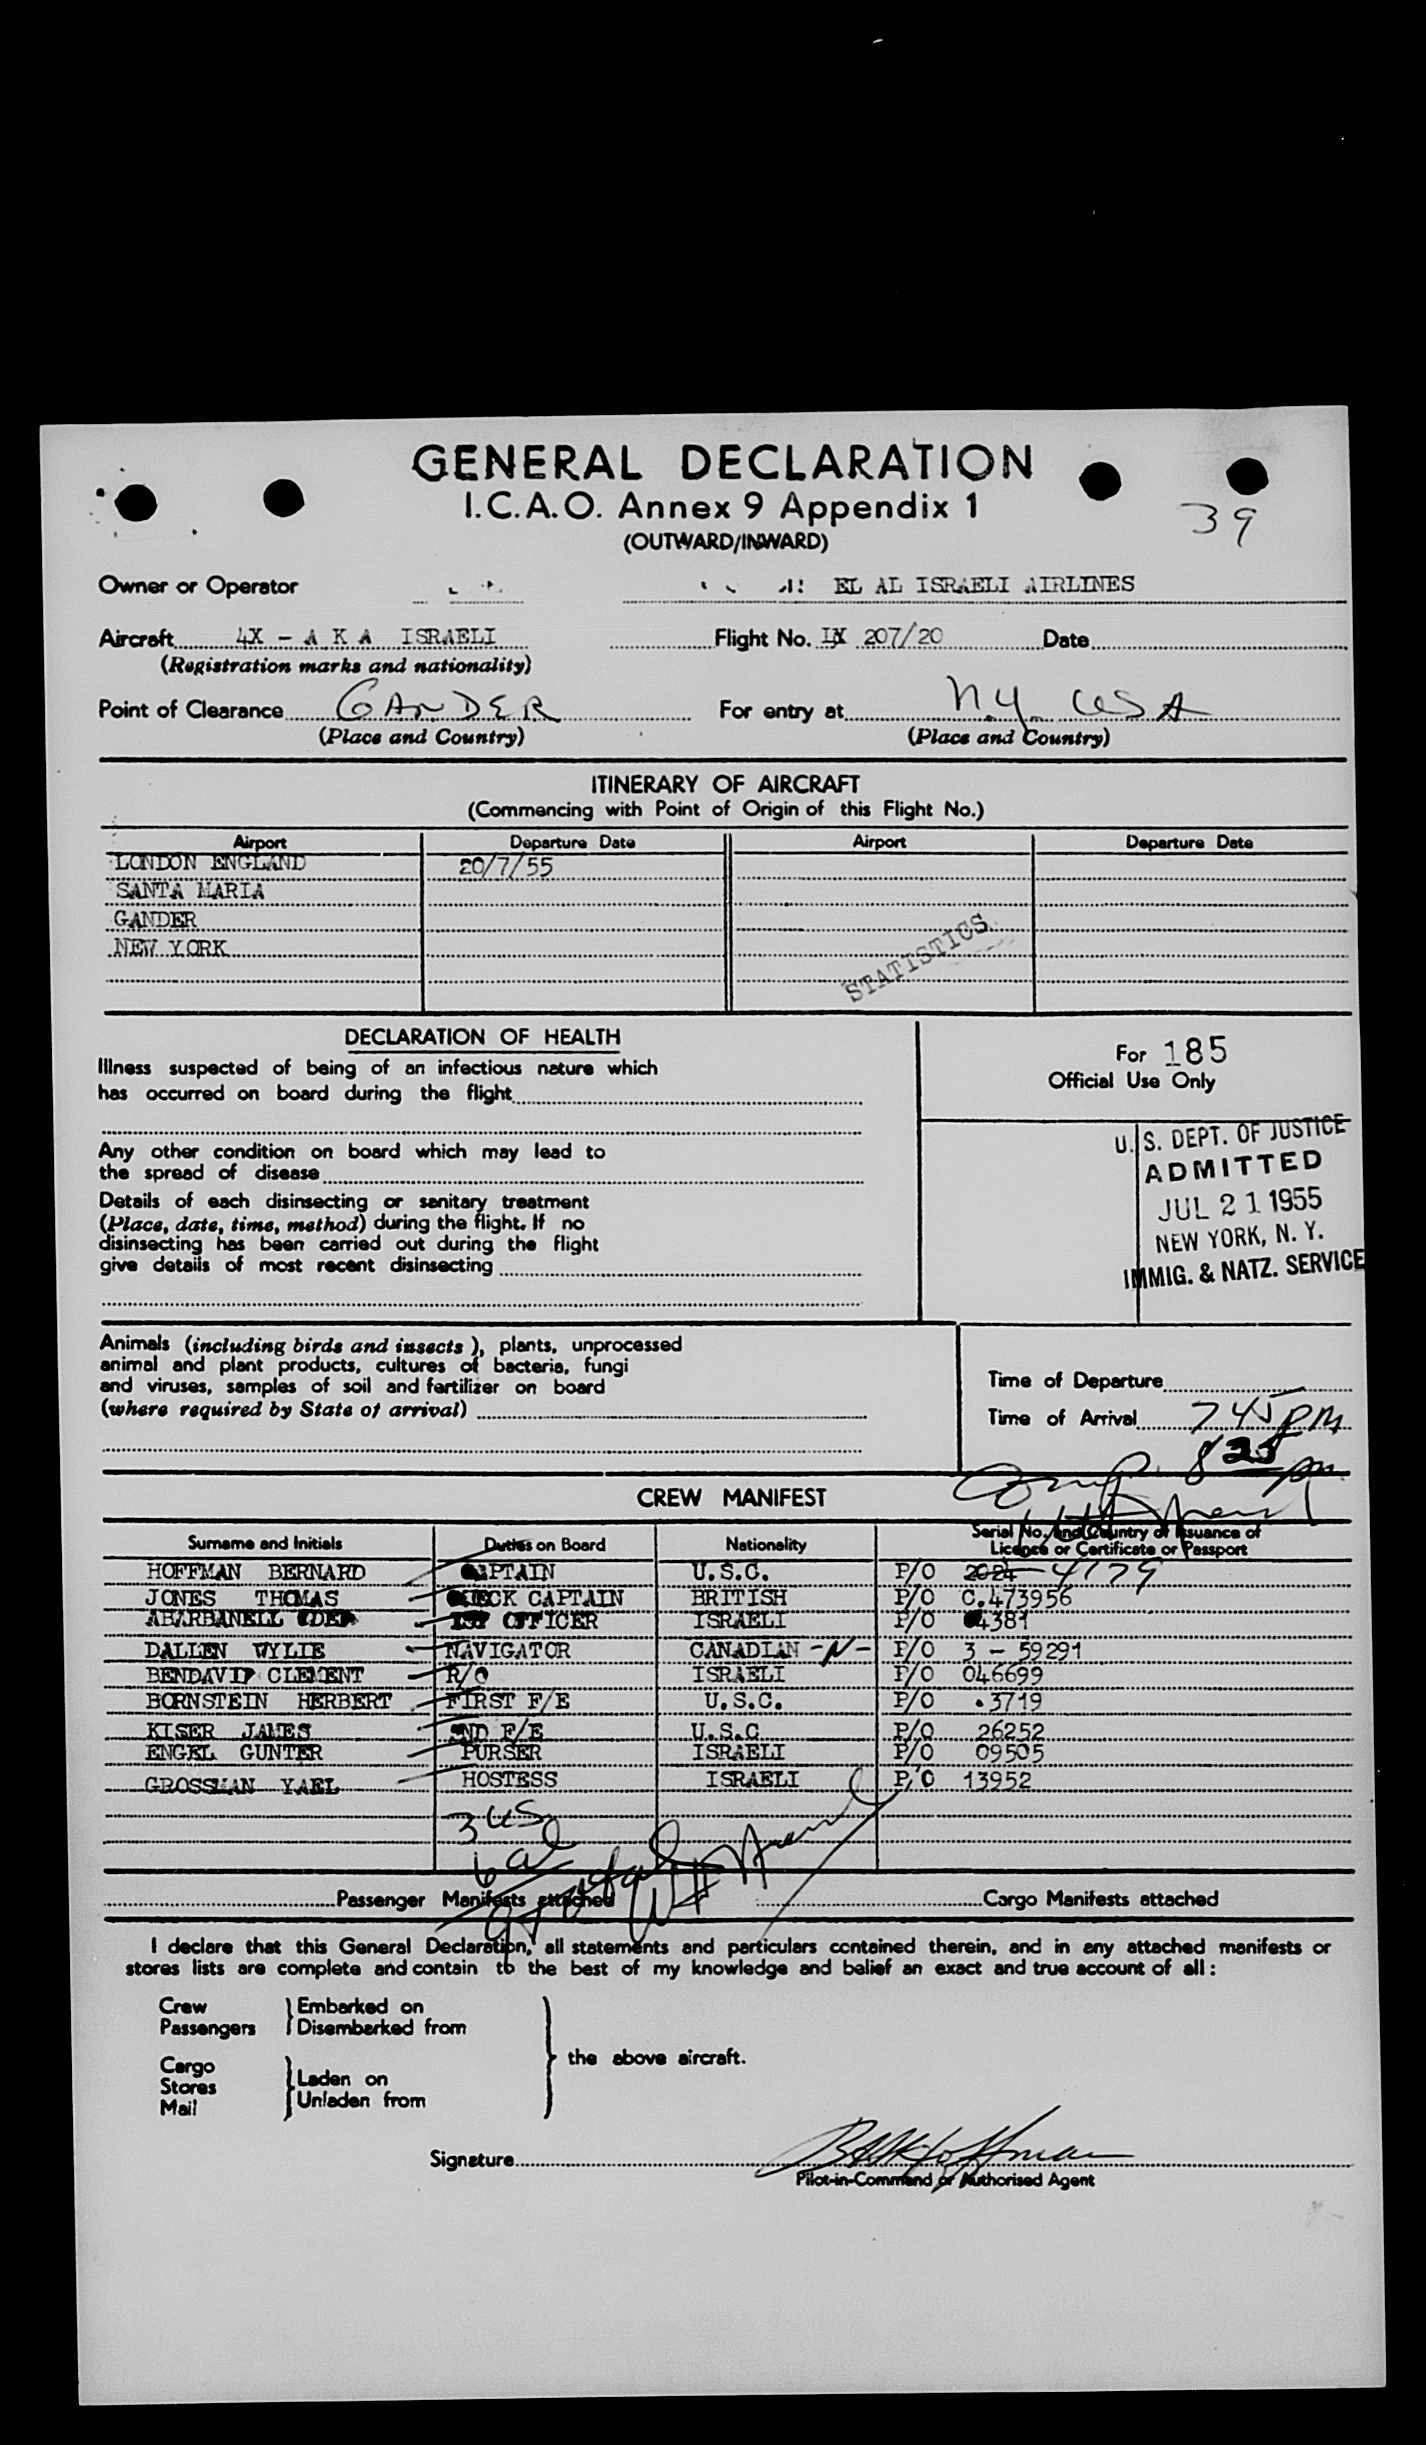 GENERAL DECLARATION
I.C.A.O. Annex 9 Appendix 1
39
(OUTWARD/INWARD)
Owner or Operator EL AL ISRAELI AIRLINES
Aircraft 4X - A K A ISRAELI Flight No. LY 207/20 Date
(Registration marks and nationality)
Point of Clearance GANDER For entry at N.Y. USA
(Place and Country) (Place and Country)
ITINERARY OF AIRCRAFT
(Commencing with Point of Origin of this Flight No.)
Airport Departure Date Airport Departure Date
LONDON ENGLAND 20/7/55
SANTA MARIA
GANDER
NEW YORK
STATISTICS
DECLARATION OF HEALTH
Illness suspected of being of an infectious nature which
has occurred on board during the flight
Any other condition on board which may lead to
the spread of disease
Details of each disinsecting or sanitary treatment
(Place, date, time, method) during the flight. If no
disinsecting has been carried out during the flight
give details of most recent disinsecting
For 185
Official Use Only
U.S. DEPT. OF JUSTICE
ADMITTED
JUL 21 1955
NEW YORK, N. Y.
IMMIG. & NATZ. SERVICE
Animals (including birds and insects), plants, unprocessed
animal and plant products, cultures of bacteria, fungi
and viruses, samples of soil and fertilizer on board
(where required by State of arrival)
Time of Departure
Time of Arrival 745 PM
Comp. 825 pm
CREW MANIFEST
Surname and Initials Duties on Board Nationality Serial No. and Country of Issuance of
Licence or Certificate or Passport
HOFFMAN BERNARD CAPTAIN U.S.C. P/O 2024 4179
JONES THOMAS CHECK CAPTAIN BRITISH P/O C.473956
ABARBANELL ODED 1ST OFFICER ISRAELI P/O 4381
DALLEN WYLIE NAVIGATOR CANADIAN -N- P/O 3 - 59291
BENDAVID CLEMENT R/O ISRAELI P/O 046699
BORNSTEIN HERBERT FIRST F/E U.S.C. P/O 3719
KISER JAMES 2ND F/E U.S.C P/O 26252
ENGEL GUNTER PURSER ISRAELI P/O 09505
GROSSMAN YAEL HOSTESS ISRAELI P/O 13952
3 US
6 al
Passenger Manifests attached Cargo Manifests attached
I declare that this General Declaration, all statements and particulars contained therein, and in any attached manifests or
stores lists are complete and contain to the best of my knowledge and belief an exact and true account of all:
Crew Embarked on
Passengers Disembarked from
the above aircraft.
Cargo
Stores Laden on
Mail Unladen from
Signature B Hoffman
Pilot-in-Command or Authorised Agent